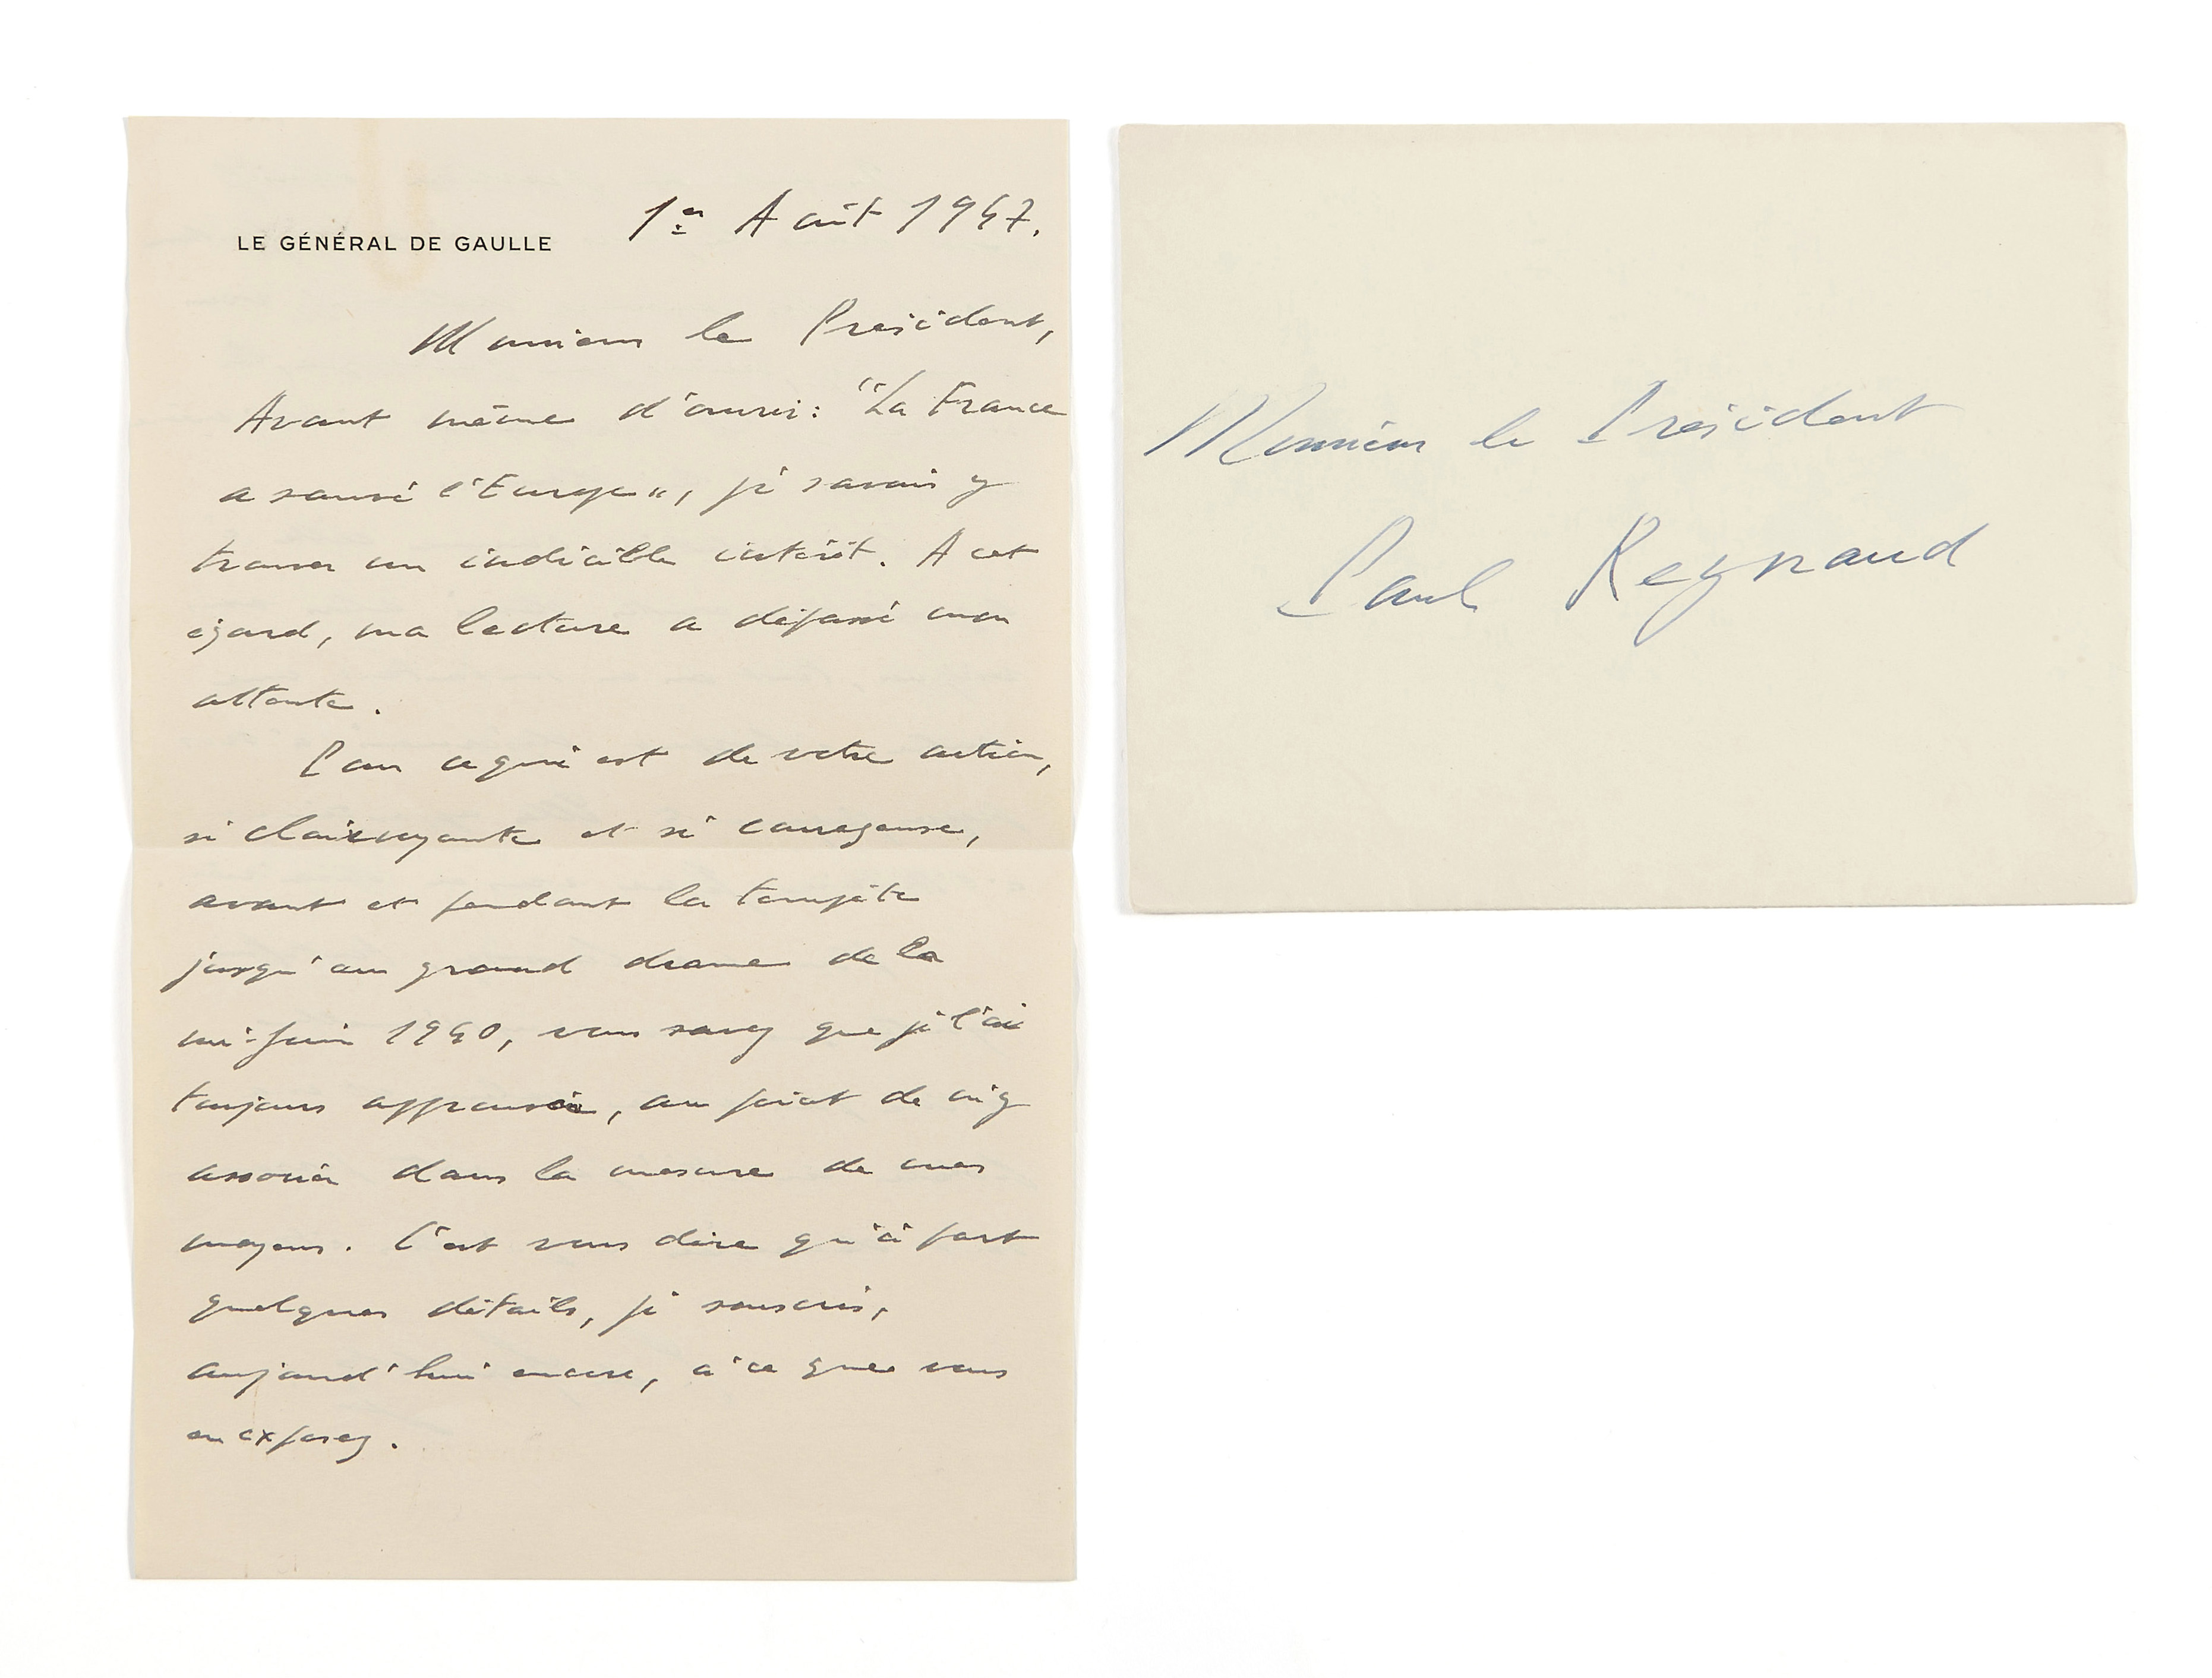 LE GÉNÉRAL DE GAULLE
1er Août 1947.
Monsieur le Président,
Avant même d'ouvrir: "La France
a sauvé l'Europe", je savais y
trouver un indicible intérêt. A cet
égard, ma lecture a dépassé mon
attente.
Pour ce qui est de votre action,
si clairvoyante et si courageuse,
avant et pendant la tempête
jusqu'au grand drame de la
mi-Juin 1940, vous savez que je l'ai
toujours approuvée, au point de m'y
associer dans la mesure de mes
moyens. C'est vous dire qu'à part
quelques détails, je souscris,
aujourd'hui encore, à ce que vous
en exposez.
Monsieur le Président
Paul Reynaud